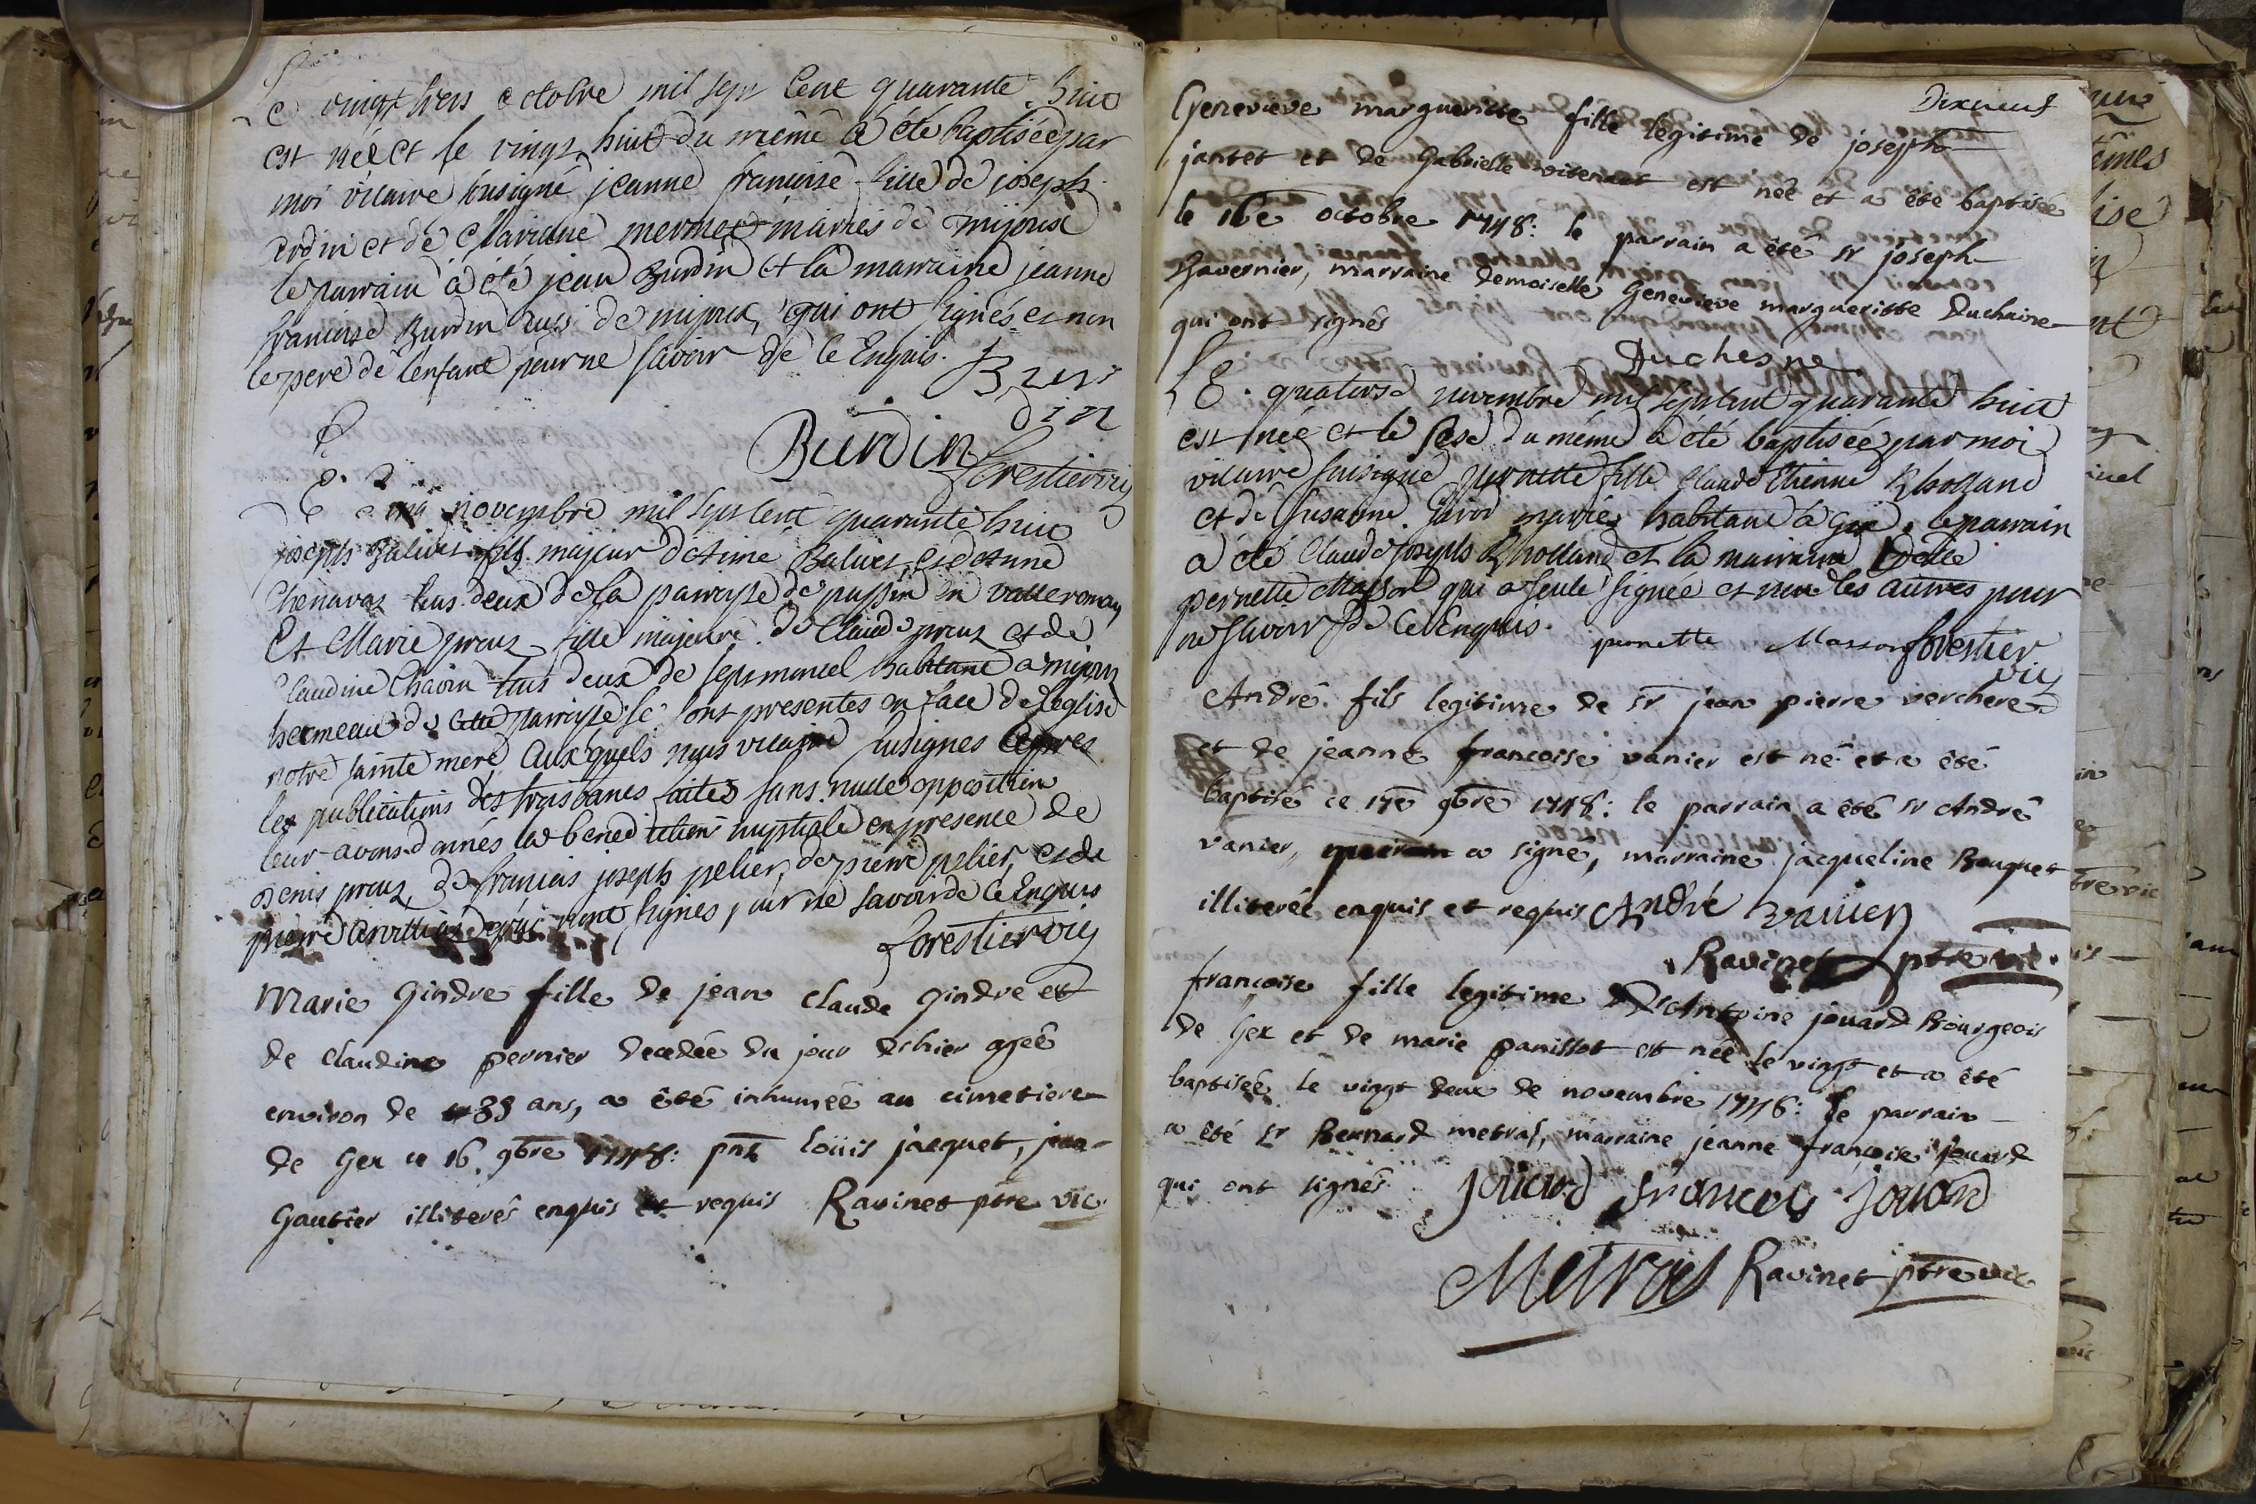 Le vingt trois octobre mil sept Cent quarante huit
est néé et le vingt huit du même a été baptiséé par
moi vicaire susigné jeanne francoise fille de joseph
et de mermet mariés de mijoux
le parrain a été jean Burdin et la marraine jeanne
francoise Burdin de mijoux, qui ont signés et non
le pere de l'enfant pour ne savoir de ce Enquis.
Bur
din
Burdin
forestier vic
Le novembre mil sept cent quarante huit
joseph Balivet fils majeur d'Aime Balivet et d'Anne
Chenavaz tous deux de la parroisse de in valleromay
Et Marie fille majeure de Claude et de
Claudine Chavin tous deux de septmoncel habitant a mijoux
hammeau de cette parroisse se sont presentes en face de l'eglise
notre sainte mere Auxquels nous vicaire susignes apres
les publications des trois bancs faites sans nulle opposition
leur avons donnés la benediction nuptiale en presence de
Denis de francois joseph pelier, de pierre pelier, et de
pierre qui n'ont signes pour ne savoir de ce Enquis
forestier vic
Marie Gindre fille de jean claude Gindre et
de claudine pernier decedée du jour d'hier agée
environ de 33 ans, a été inhumée au cimetiere
de Gex ce 16. 9bre 1748: pnt. loüis jacquet, jean
Gautier illiterés enquis et requis Ravinet ptre vic
Dixneuf
Genevieve margueritte fille legitime de joseph
jantet et de Gabrielle est née et a été baptisée
le 16e octobre 1748: le parrain a été sr joseph
Tavernier, marraine demoiselle Genevieve margueritte Duchaine
qui ont signés
Duchesne
LE quatorse novembre mil sept cent quarante huit
est néé et le sese du même a été baptisée par moi
vicaire susigné pernette fille Claude Etienne Rholland
et de susanne Girod mariés habitant a Gex. le parrain
a été Claude Joseph Rholland et la marraine Delle
pernette Masson qui a seule signée et non les autres pour
ne savoir de ce Enquis.
pernette Masson forestier
vic
André fils legitime de sr jean pierre verchere
et de jeanne francoise vanier est né et a été
baptisé ce 17e 9bre 1748: le parrain a été sr André
vanier, a signé, marraine jacqueline Bouquet
illiterée enquis et requis André vanier
Ravinet ptre vic.
francoise fille legitime Dr Antoine jouard Bourgeois
de Gex et de marie panissot est née le vingt et a été
baptisée le vingt deux de novembre 1748: le parrain
a été sr Bernard metras, marraine jeanne francoise jouard
qui ont signés jouard francois Jouard
Metras Ravinet ptre vic